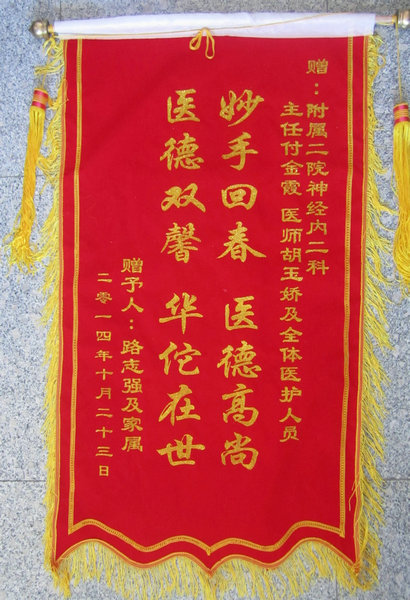 赠：附属二院神经内二科
主任付金霞 医师胡玉娇及全体医护人员
妙手回春 医德高尚
医德双馨 华佗在世
赠予人：路志强及家属
二零一四年十月二十三日